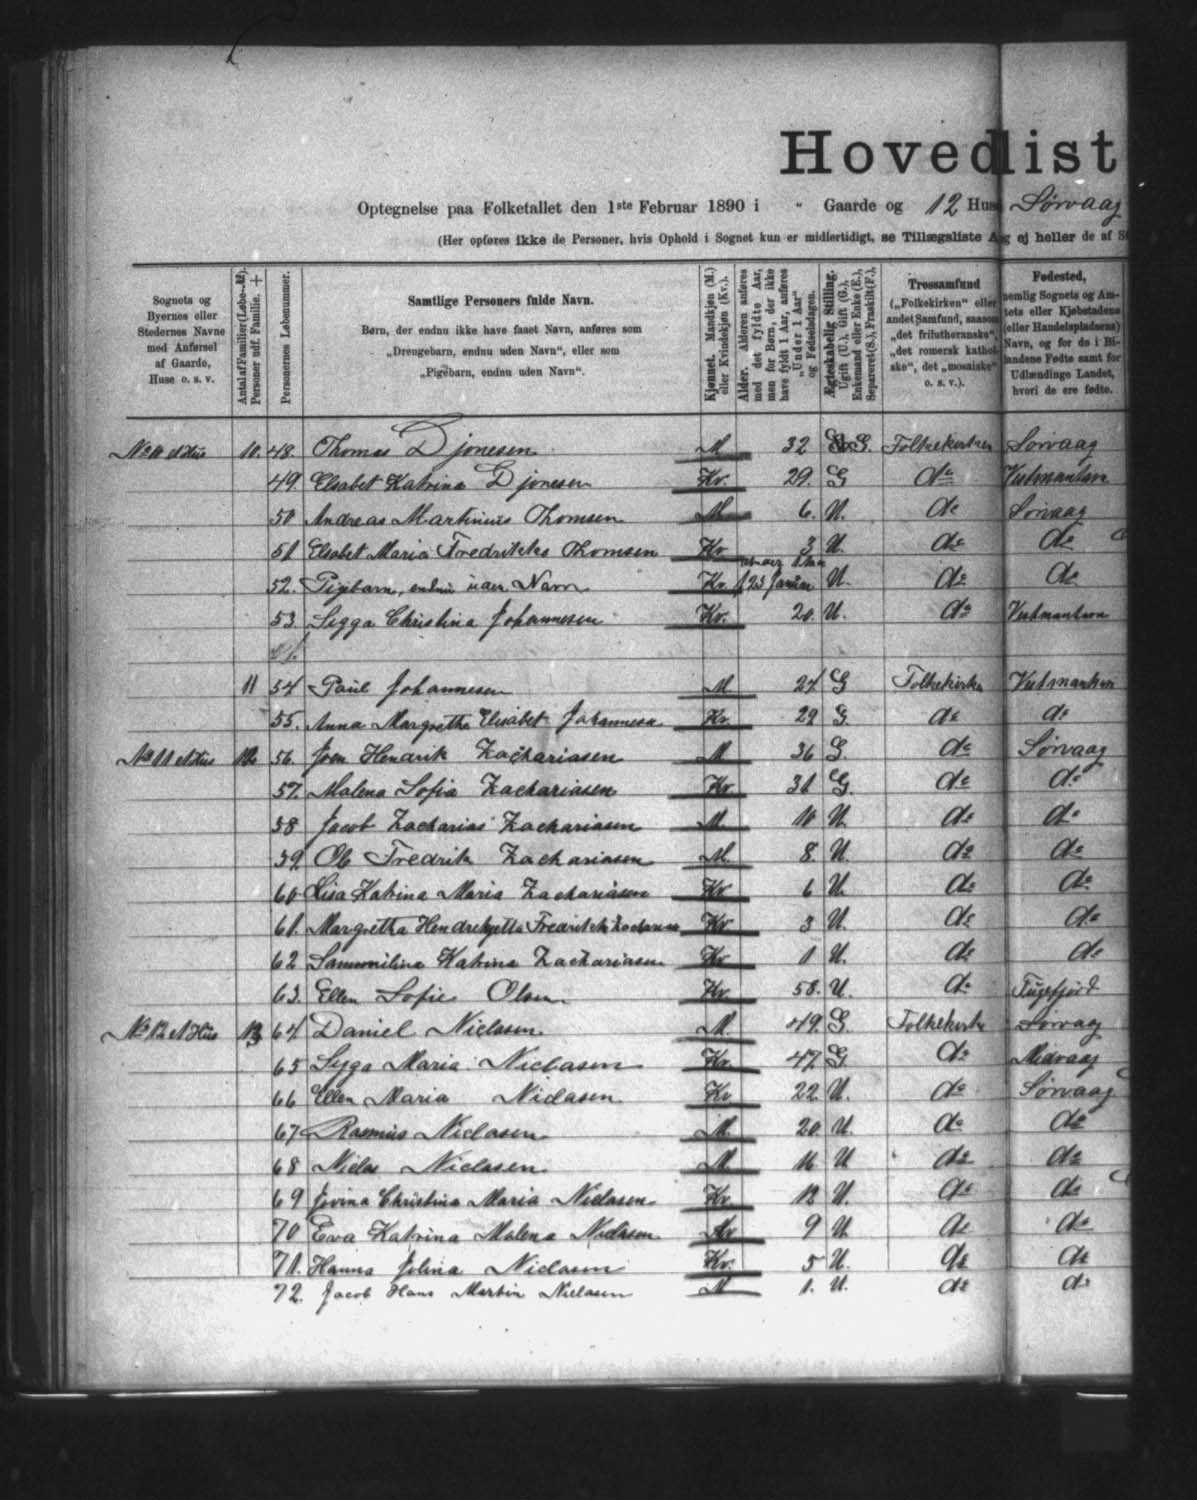 Hovedlist
Optegnelse paa Folketallet den 1ste Februar 1890 i " Gaarde og 12 Huse Sørvaag
(Her opføres ikke de Personer, hvis Ophold i Sognet kun er midlertidigt, se Tillægsliste A og ej heller de af S
Sognets og Byernes eller Stedernes Navne med Anførsel af Gaarde, Huse o. s. v.
Antal af Familier (Løbe-№). Personer udf. Familie. +
Personernes Løbenummer.
Samtlige Personers fulde Navn.
Børn, der endnu ikke have faaet Navn, anføres som
„Drengebarn, endnu uden Navn“, eller som
„Pigebarn, endnu uden Navn“.
Kjønnet. Mandkjøn (M.) eller Kvindekjøn (Kv.).
Alder. Alderen anføres med det fyldte Aar, men for Børn, der ikke have fyldt 1 Aar, anføres „Under 1 Aar“ og Fødselsdagen.
Ægteskabelig Stilling. Ugift (U.), Gift (G.), Enkemand eller Enke (E.), Separeret (S.), Fraskilt (F.).
Trossamfund („Folkekirken“ eller andet Samfund, saasom „det frilutheranske“, „det romersk kathol- ske“, det „mosaiske“ o. s. v.).
Fødested, nemlig Sognets og Am- tets eller Kjøbstadens (eller Handelspladsens) Navn, og for de i Bi- landene Fødte samt for Udlændinge Landet, hvori de ere fødte.
10. 48. Thomas Djonesen M 32 G. Folkekirken Sørvaag
49. Elsabet Katrina Djonesen Kv. 29. G do Vestmanhavn
50 Andreas Martinus Thomsen M 6. U. do Sørvaag
51 Elsabet Maria Fredrikke Thomsen Kv 3 U. do do
52. Pigebarn, endnu uden Navn Kv. 23 Januar U. do do
53. Sigga Christina Johannesen Kv. 20. U. do Vestmanhavn
11 54 Paul Johannesen M 24 G Folkekirken Vestmanhavn
55. Anna Margretha Elisabet Johannesen Kv. 29 G. do do
No 11 et Hus 12. 56. Joen Hendrik Zachariasen M 36 G. do Sørvaag
57. Malena Sofia Zachariasen Kv 31 G. do do
58 Jacob Zacharias Zachariasen M. 10 U. do do
59. Ole Fredrik Zachariasen M. 8. U. do do
60. Lisa Katrina Maria Zachariasen Kv 6 U. do do
61. Margretha Hendrikjetta Kv 3 U. do do
62 Katrina Zachariasen Kv 1 U. do do
63. Ellen Sofie Olsen Kv. 58. U. do Fuglefjord
No 12 et Hus 13 64 Daniel Niclasen M. 49. G. Folkekirken Sørvaag
65 Sigga Maria Niclasen Kv. 47. G do Midvaag
66 Ellen Maria Niclasen Kv. 22 U. do Sørvaag
67 Rasmus Niclasen M. 20. U. do do
68 Niclas Niclasen. M. 16 U do do
69 Jovina Christina Maria Niclasen. Kv. 12 U. do do
70 Eva Katrina Malena Niclasen Kv 9 U. do do
71. Hanna Jolina Niclasen Kv. 5 U. do do
72. Jacob Hans Martin Niclasen M 1. U. do do